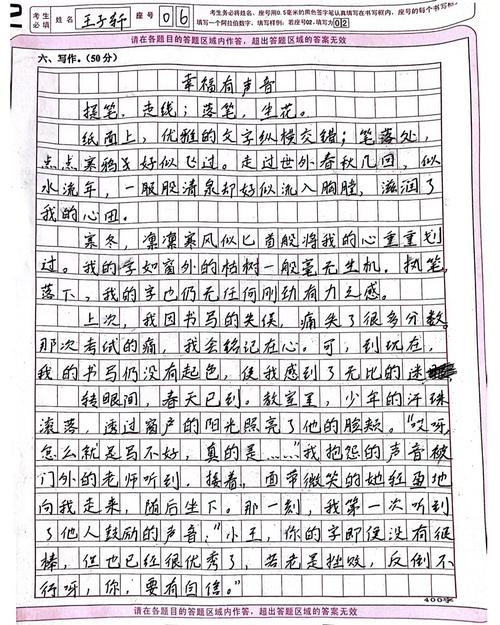 考生必填 姓名 王子轩 座号 06 考生务必将姓名、座号用0.5毫米的黑色签字笔认真填写在书写框内，座号的每个书写框只能填写一个阿拉伯数字，填写样例：若座号02，填写为02
请在各题目的答题区域内作答，超出答题区域的答案无效
六、写作。(50分)
幸福有声音
提笔，走线；落笔，生花。
纸面上，优雅的文字纵横交错；笔落处，
点点寒鸦好似飞过。走过世外春秋几回，似
水流年，一股股清泉却好似流入胸膛，滋润了
我的心田。
寒冬，凛凛寒风似匕首般将我的心重重划
过。我的字如窗外的枯树一般毫无生机，执笔
落下，我的字也仍无任何刚劲有力之感。
上次，我因书写的失误，痛失了很多分数。
那次考试的痛，我会铭记在心。可，到现在，
我的书写仍没有起色，使我感到了无比的迷
转眼间，春天已到。教室里，少年的汗珠
滚落，透过窗户的阳光照亮了他的脸颊。“哎呀，
怎么就是写不好，真的是……”我抱怨的声音被
门外的老师听到，接着，面带微笑的她轻盈地
向我走来，随后坐下。那一刻，我第一次听到
了他人鼓励的声音：“小王，你的字即便没有很
棒，但也已经很优秀了，若老是挫败，反倒不
行呀，你，要有自信。”
400字
请在各题目的答题区域内作答，超出答题区域的答案无效